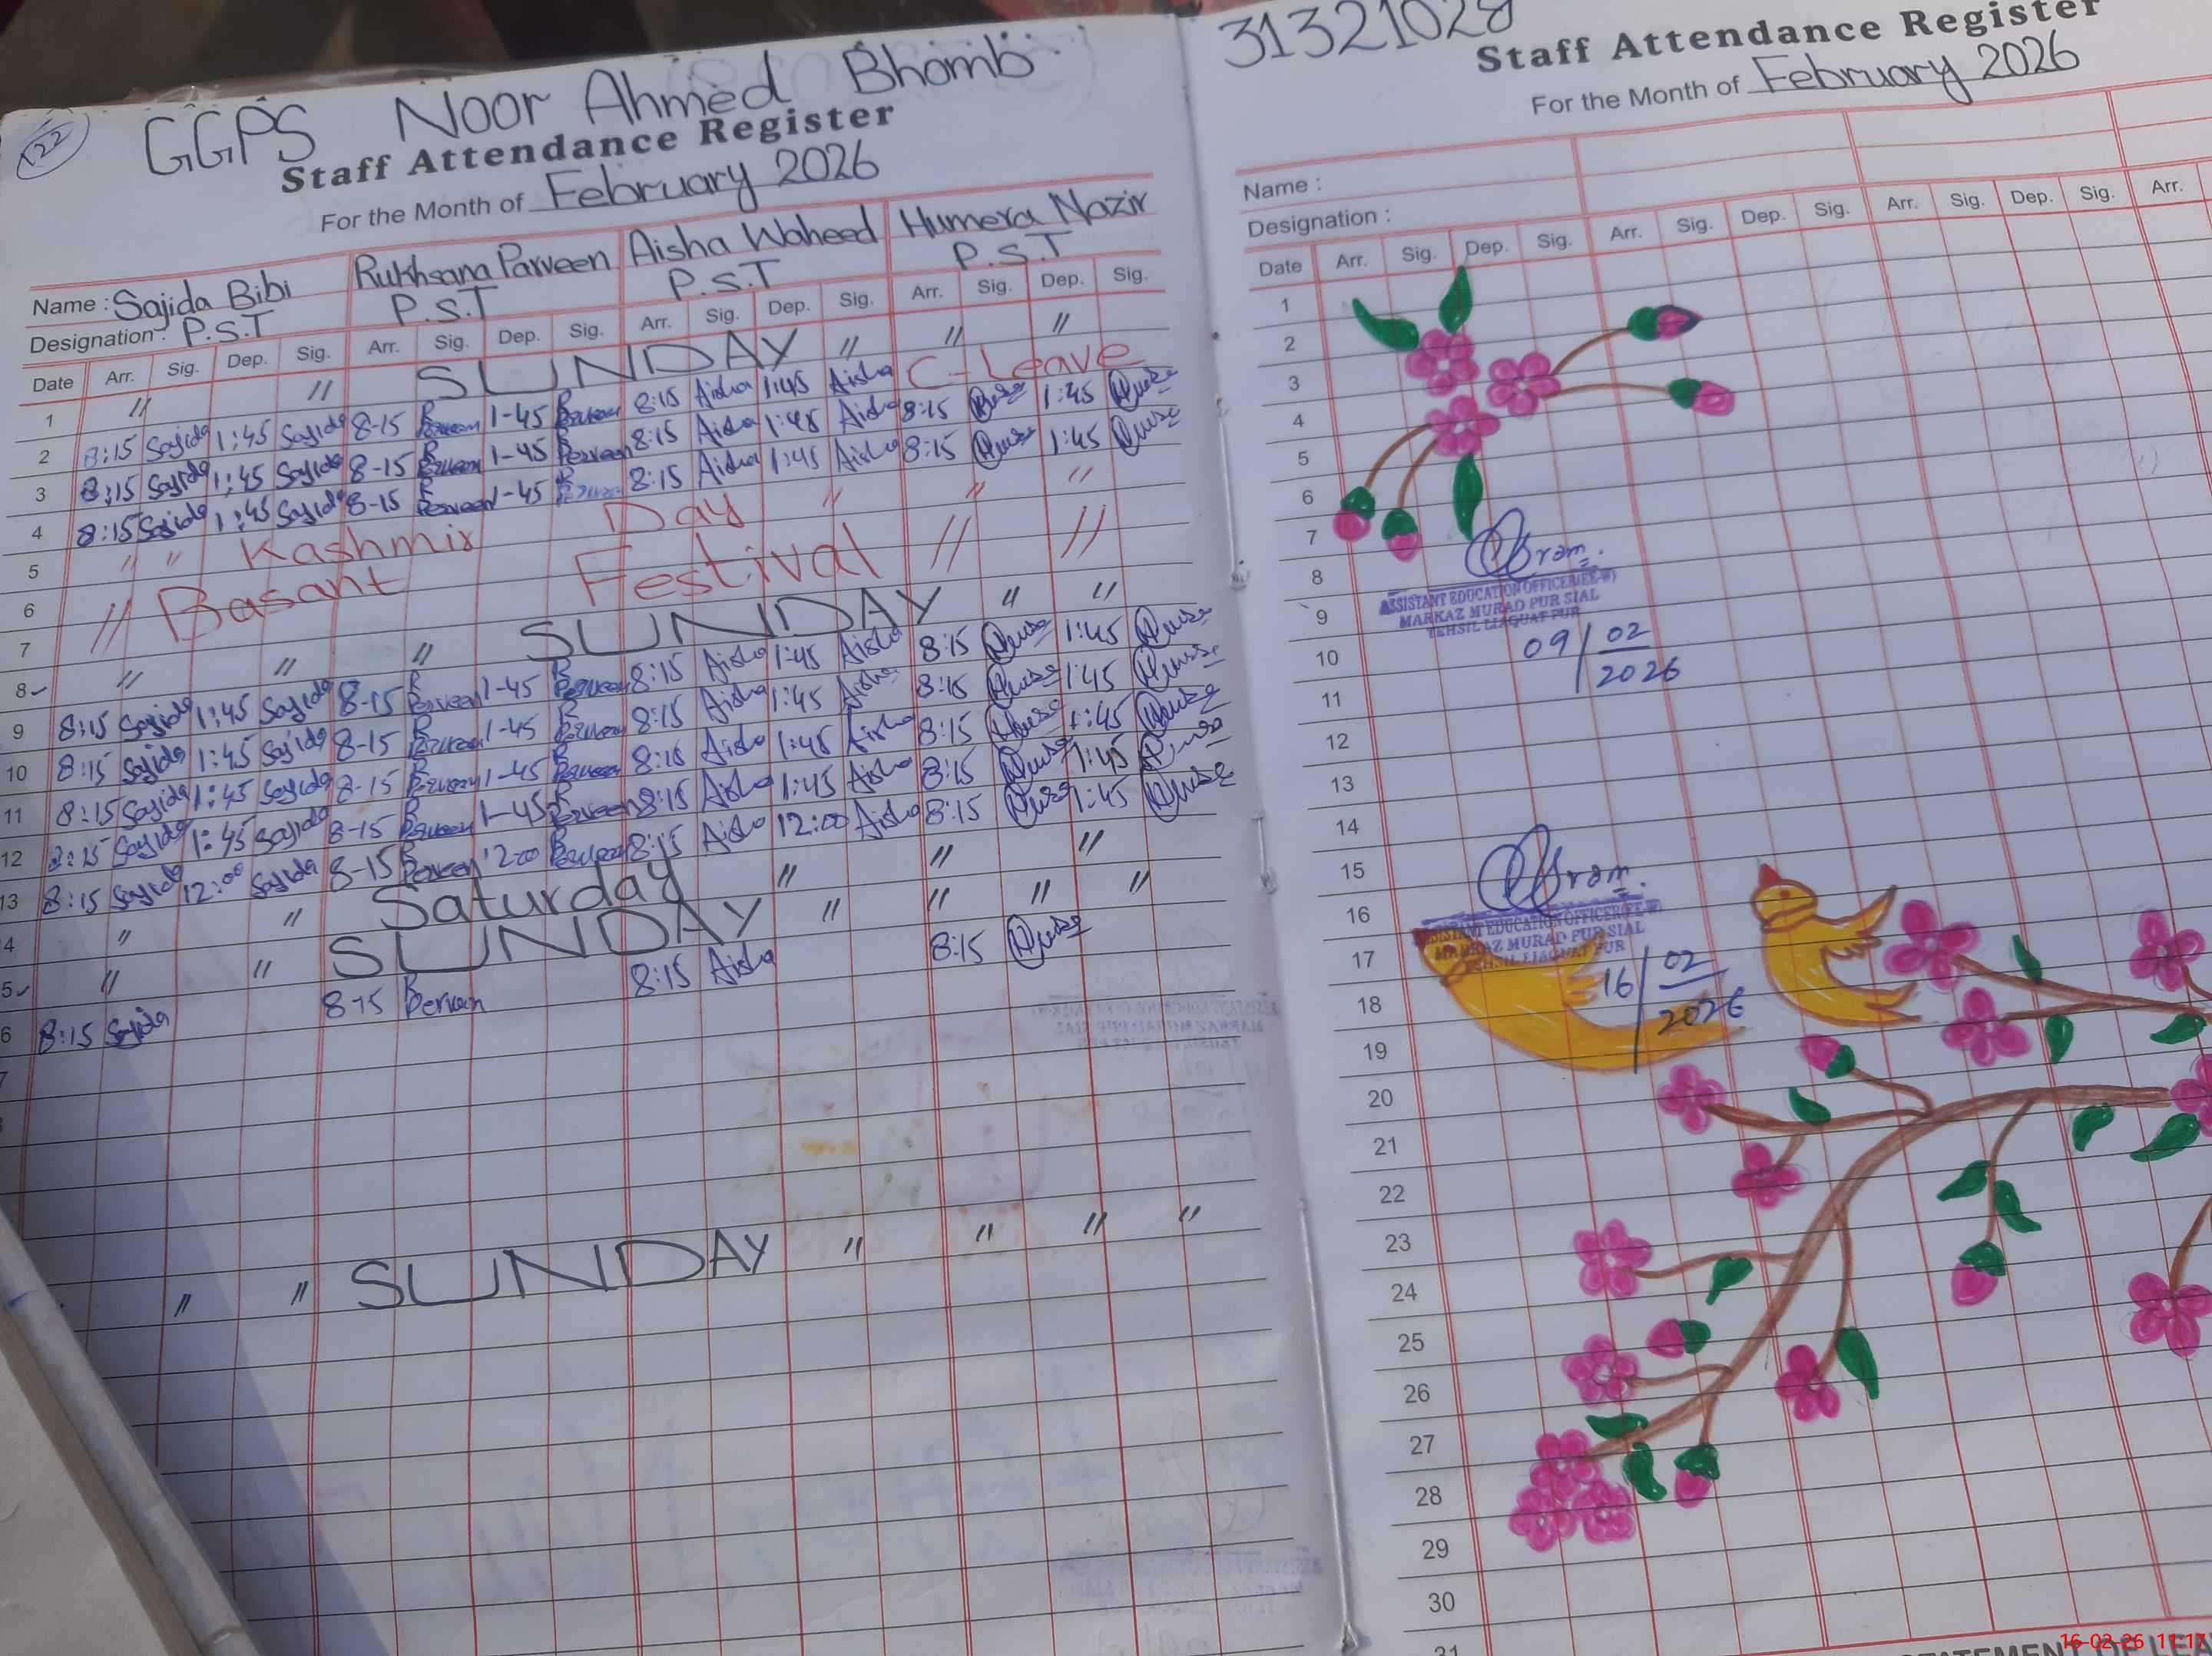 122
GGPS Noor Ahmed Bhomb
Staff Attendance Register
For the Month of February 2026
Name : Sajida Bibi Rukhsana Parveen Aisha Waheed Humera Nazir
Designation : P.S.T P.S.T P.S.T P.S.T
Date Arr. Sig. Dep. Sig. Arr. Sig. Dep. Sig. Arr. Sig. Dep. Sig. Arr. Sig. Dep. Sig.
1 " " SUNDAY " " "
2 8:15 Sajida 1:45 Sajida 8-15 R Parveen 1-45 R Parveen 8:15 Aisha 1:45 Aisha C-Leave
3 8:15 Sajida 1:45 Sajida 8-15 R Parveen 1-45 R Parveen 8:15 Aisha 1:45 Aisha 8:15 1:45
4 8:15 Sajida 1:45 Sajida 8-15 R Parveen 1-45 R Parveen 8:15 Aisha 1:45 Aisha 8:15 1:45
5 " " Kashmir Day " " "
6 " Basant Festival " "
7
8 " " " SUNDAY " "
9 8:15 Sajida 1:45 Sajida 8-15 R Parveen 1-45 R Parveen 8:15 Aisha 1:45 Aisha 8:15 1:45
10 8:15 Sajida 1:45 Sajida 8-15 R Parveen 1-45 R Parveen 8:15 Aisha 1:45 Aisha 8:15 1:45
11 8:15 Sajida 1:45 Sajida 8-15 R Parveen 1-45 R Parveen 8:15 Aisha 1:45 Aisha 8:15 1:45
12 8:15 Sajida 1:45 Sajida 8-15 R Parveen 1-45 R Parveen 8:15 Aisha 1:45 Aisha 8:15 1:45
13 8:15 Sajida 12:00 Sajida 8-15 R Parveen 12-00 R Parveen 8:15 Aisha 12:00 Aisha 8:15 1:45
4 " " Saturday " " "
5 " " SUNDAY " " " "
6 8:15 Sajida 8-15 R Perveen 8:15 Aisha 8:15
" " SUNDAY " " " "
31321028
Staff Attendance Register
For the Month of February 2026
Name :
Designation :
Date Arr. Sig. Dep. Sig. Arr. Sig. Dep. Sig. Arr. Sig. Dep. Sig. Arr.
1
2
3
4
5
6
7
8
9
10
11
12
13
14
15
16
17
18
19
20
21
22
23
24
25
26
27
28
29
30
31
ASSISTANT EDUCATION OFFICER(EE-W)
MARKAZ MURAD PUR SIAL
TEHSIL LIAQUAT PUR
09/02
2026
ASSISTANT EDUCATION OFFICER(EE-W)
MARKAZ MURAD PUR SIAL
TEHSIL LIAQUAT PUR
16/02
2026
STATEMENT OF LEA
16-02-26 11:17